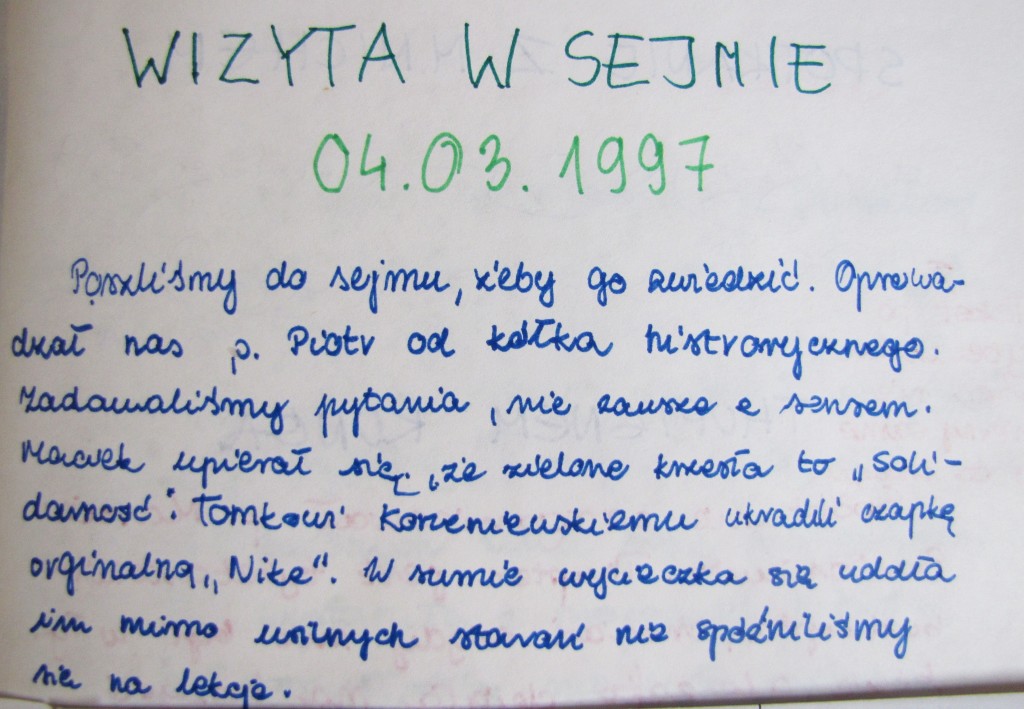 WIZYTA W SEJMIE
04.03.1997
Poszliśmy do sejmu, żeby go zwiedzić. Oprowa-
dzał nas p. Piotr od kółka historycznego.
Zadawaliśmy pytania, nie zawsze z sensem.
Maciek upierał się, że zielone krzesła to „Soli-
darność". Tomkowi Korzeniewskiemu ukradli czapkę
orginalną „Nike". W sumie wycieczka się udała
i mimo usilnych starań nie spóźniliśmy
się na lekcje.